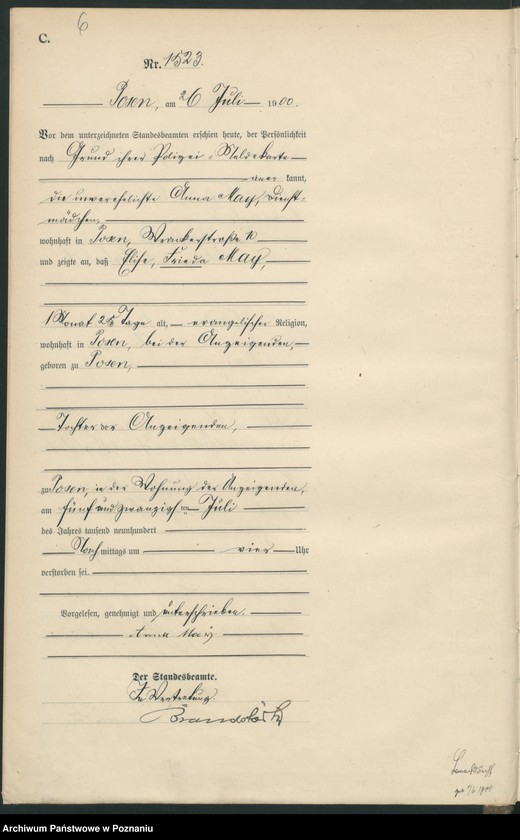 C. 6
Nr. 1523.
Posen, am 26 Juli 1900.
Vor dem unterzeichneten Standesbeamten erschien heute, der Persönlichkeit
nach Grund ihrer Polizei-Meldekarte
kannt,
die unverehelichte Anna May, Dienst-
mädchen,
wohnhaft in Posen,
und zeigte an, daß Elise, Frieda May,
1 Monat 25 Tage alt, evangelischer Religion,
wohnhaft in Posen, bei der Anzeigenden,
geboren zu Posen,
Tochter der Anzeigenden,
zu Posen, in der Wohnung der Anzeigenden,
am fünf und zwanzigsten Juli
des Jahres tausend neunhundert
Nachmittags um vier Uhr
verstorben sei.
Vorgelesen, genehmigt und unterschrieben.
Anna May
Der Standesbeamte.
In Vertretung.
Archiwum Państwowe w Poznaniu